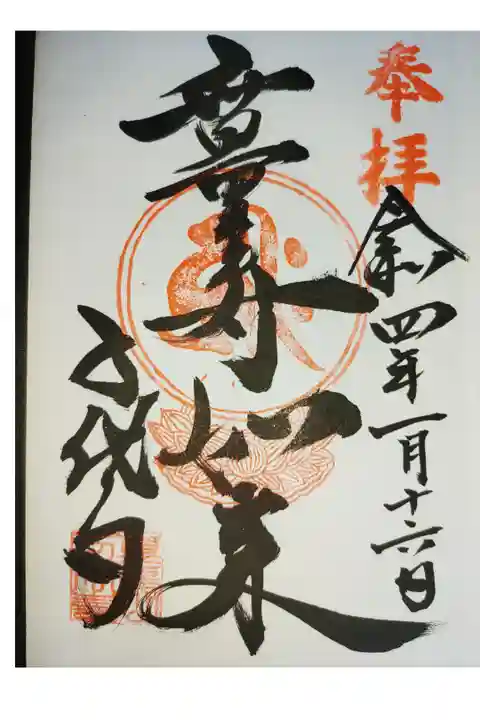 奉拝
令和四年一月十六日
無量寿如来